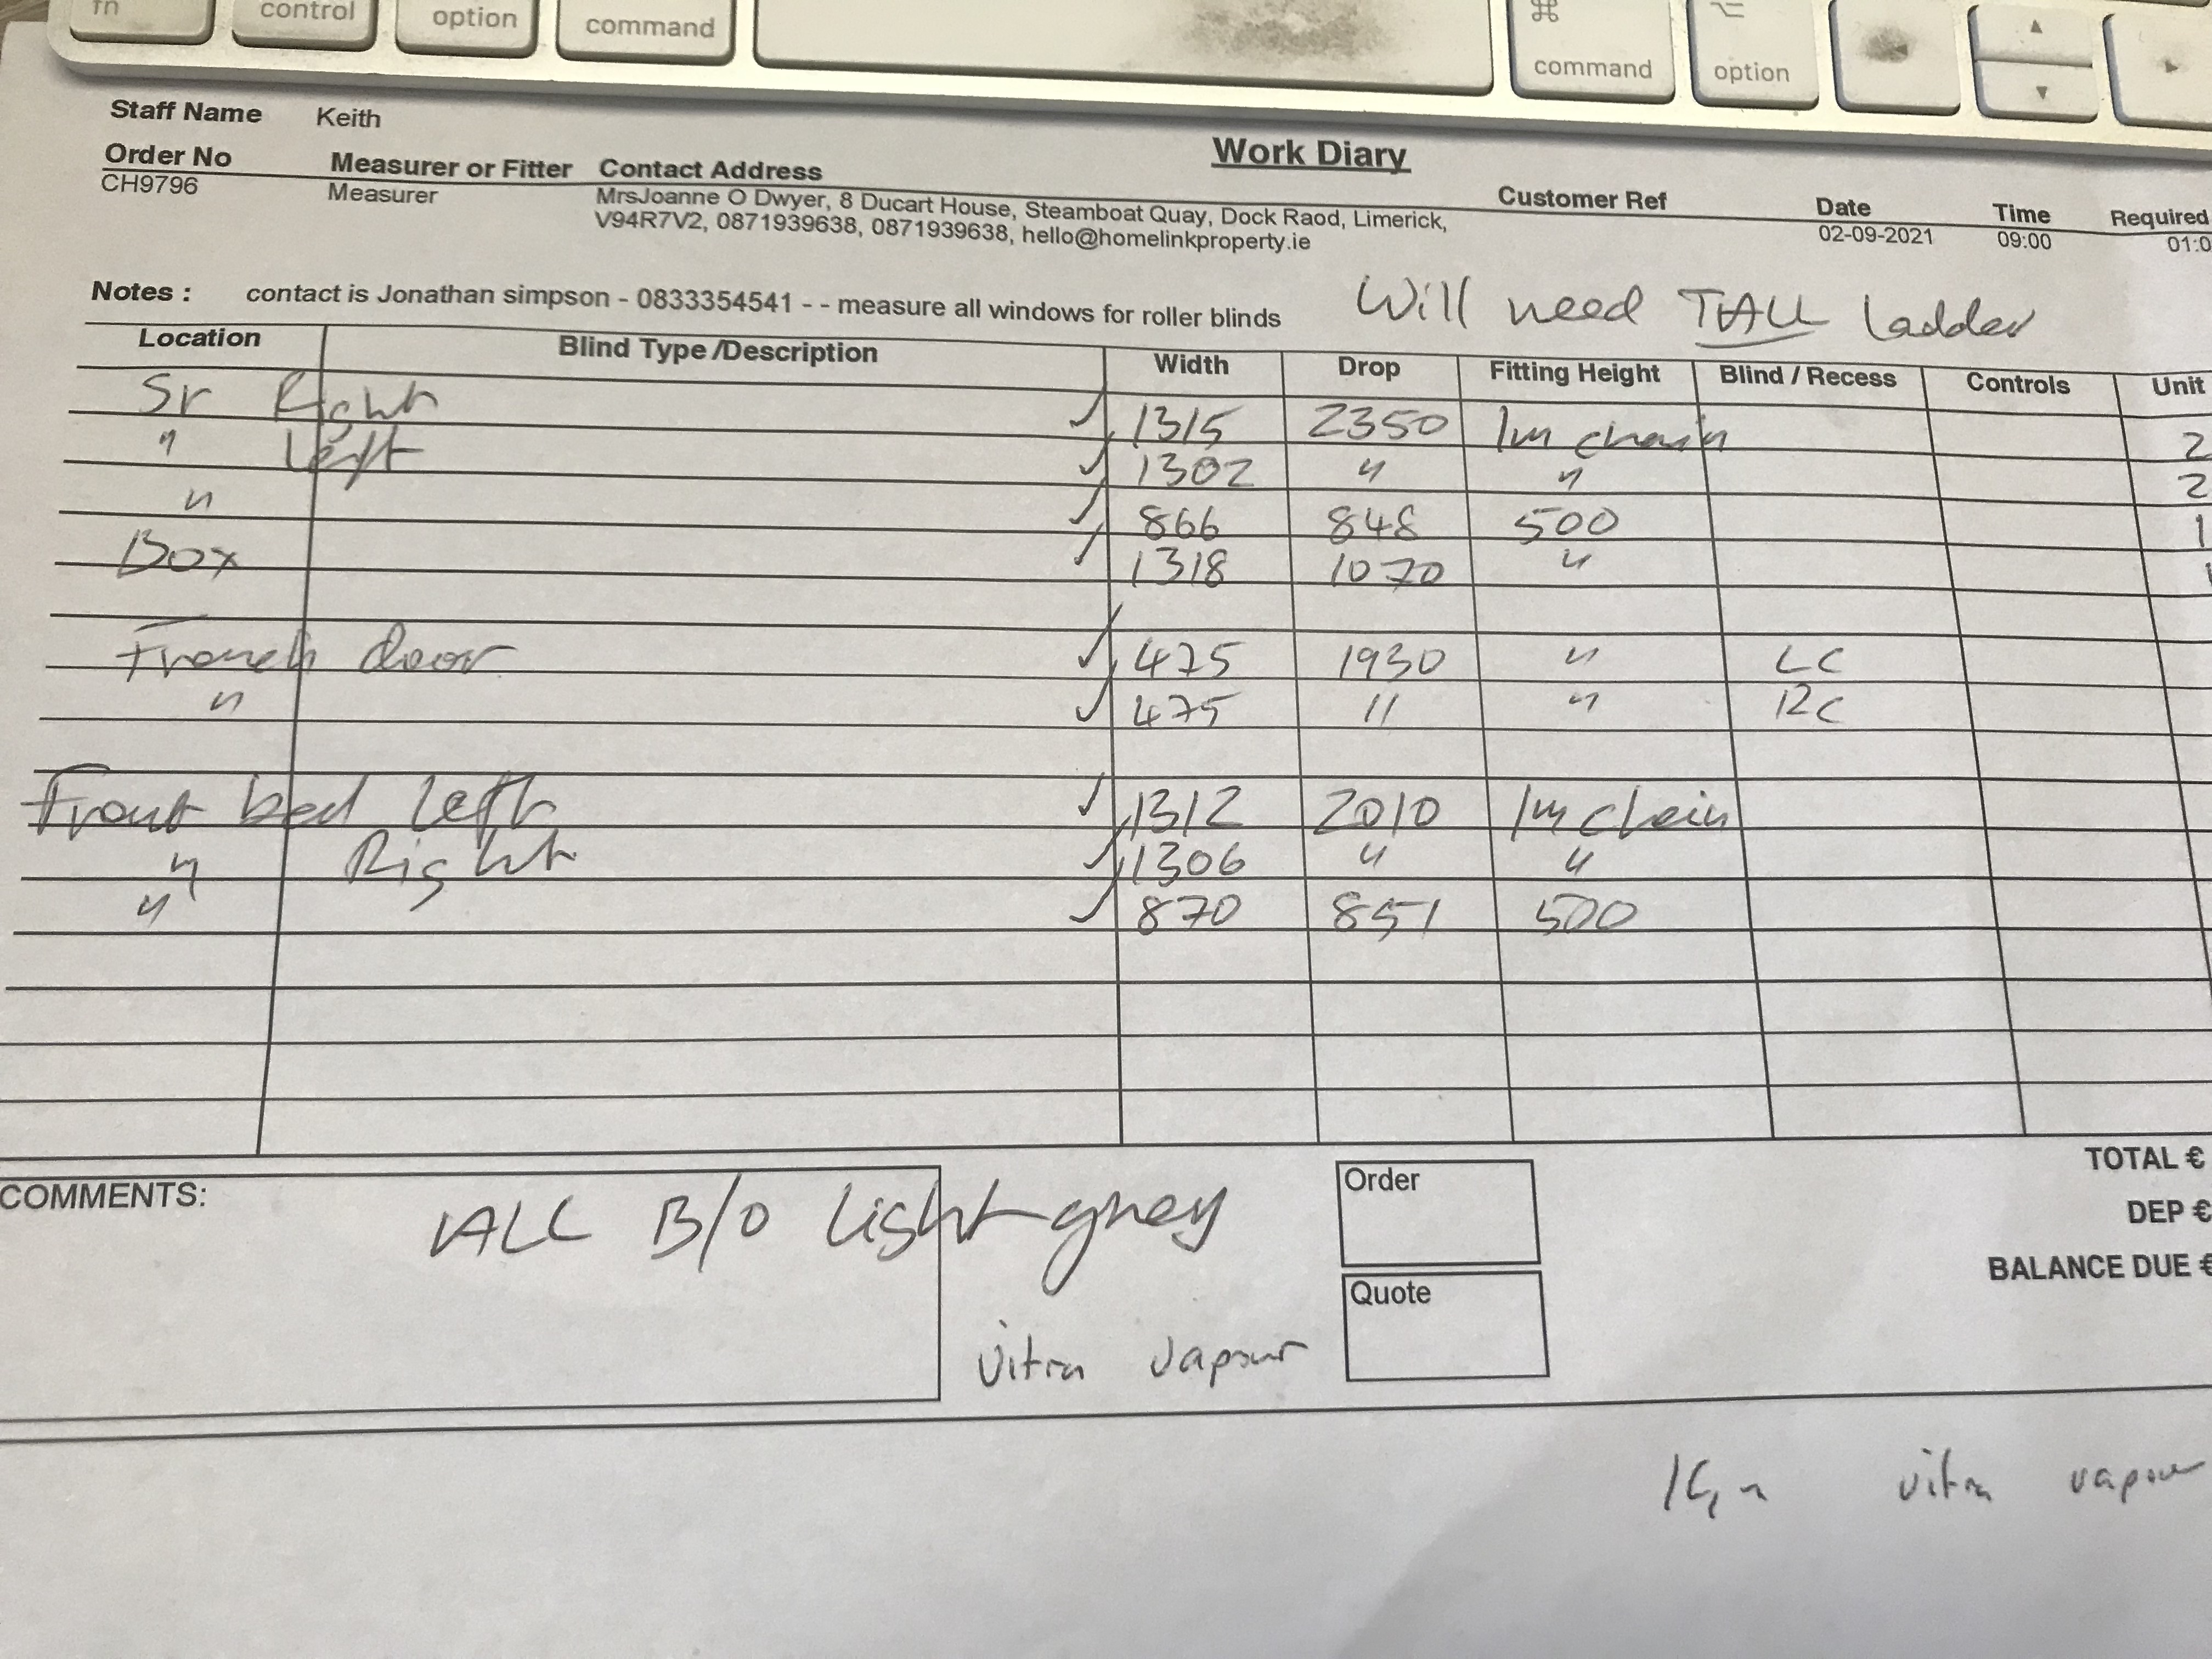 fn control option command ⌘ command ⌥ option ▲ ▼ ▶
Staff Name Keith
Work Diary
Order No Measurer or Fitter Contact Address Customer Ref Date Time Required
CH9796 Measurer MrsJoanne O Dwyer, 8 Ducart House, Steamboat Quay, Dock Raod, Limerick, 02-09-2021 09:00 01:0
V94R7V2, 0871939638, 0871939638, hello@homelinkproperty.ie
Notes : contact is Jonathan simpson - 0833354541 - - measure all windows for roller blinds Will need TALL ladder
Location Blind Type /Description Width Drop Fitting Height Blind / Recess Controls Unit
Sr Right ✓ 1315 2350 1m chain 2
" Left ✓ 1302 " " 2
" ✓ 866 848 500 1
Box ✓ 1318 1070 "
French door ✓ 475 1930 " LC
" ✓ 475 11 " RC
Front bed left ✓ 1312 2010 1m chain
" Right ✓ 1306 " "
" ✓ 870 851 500
COMMENTS: ALL B/O light grey
Order
Quote
TOTAL €
DEP €
BALANCE DUE €
vitra vapour
vitra vapour